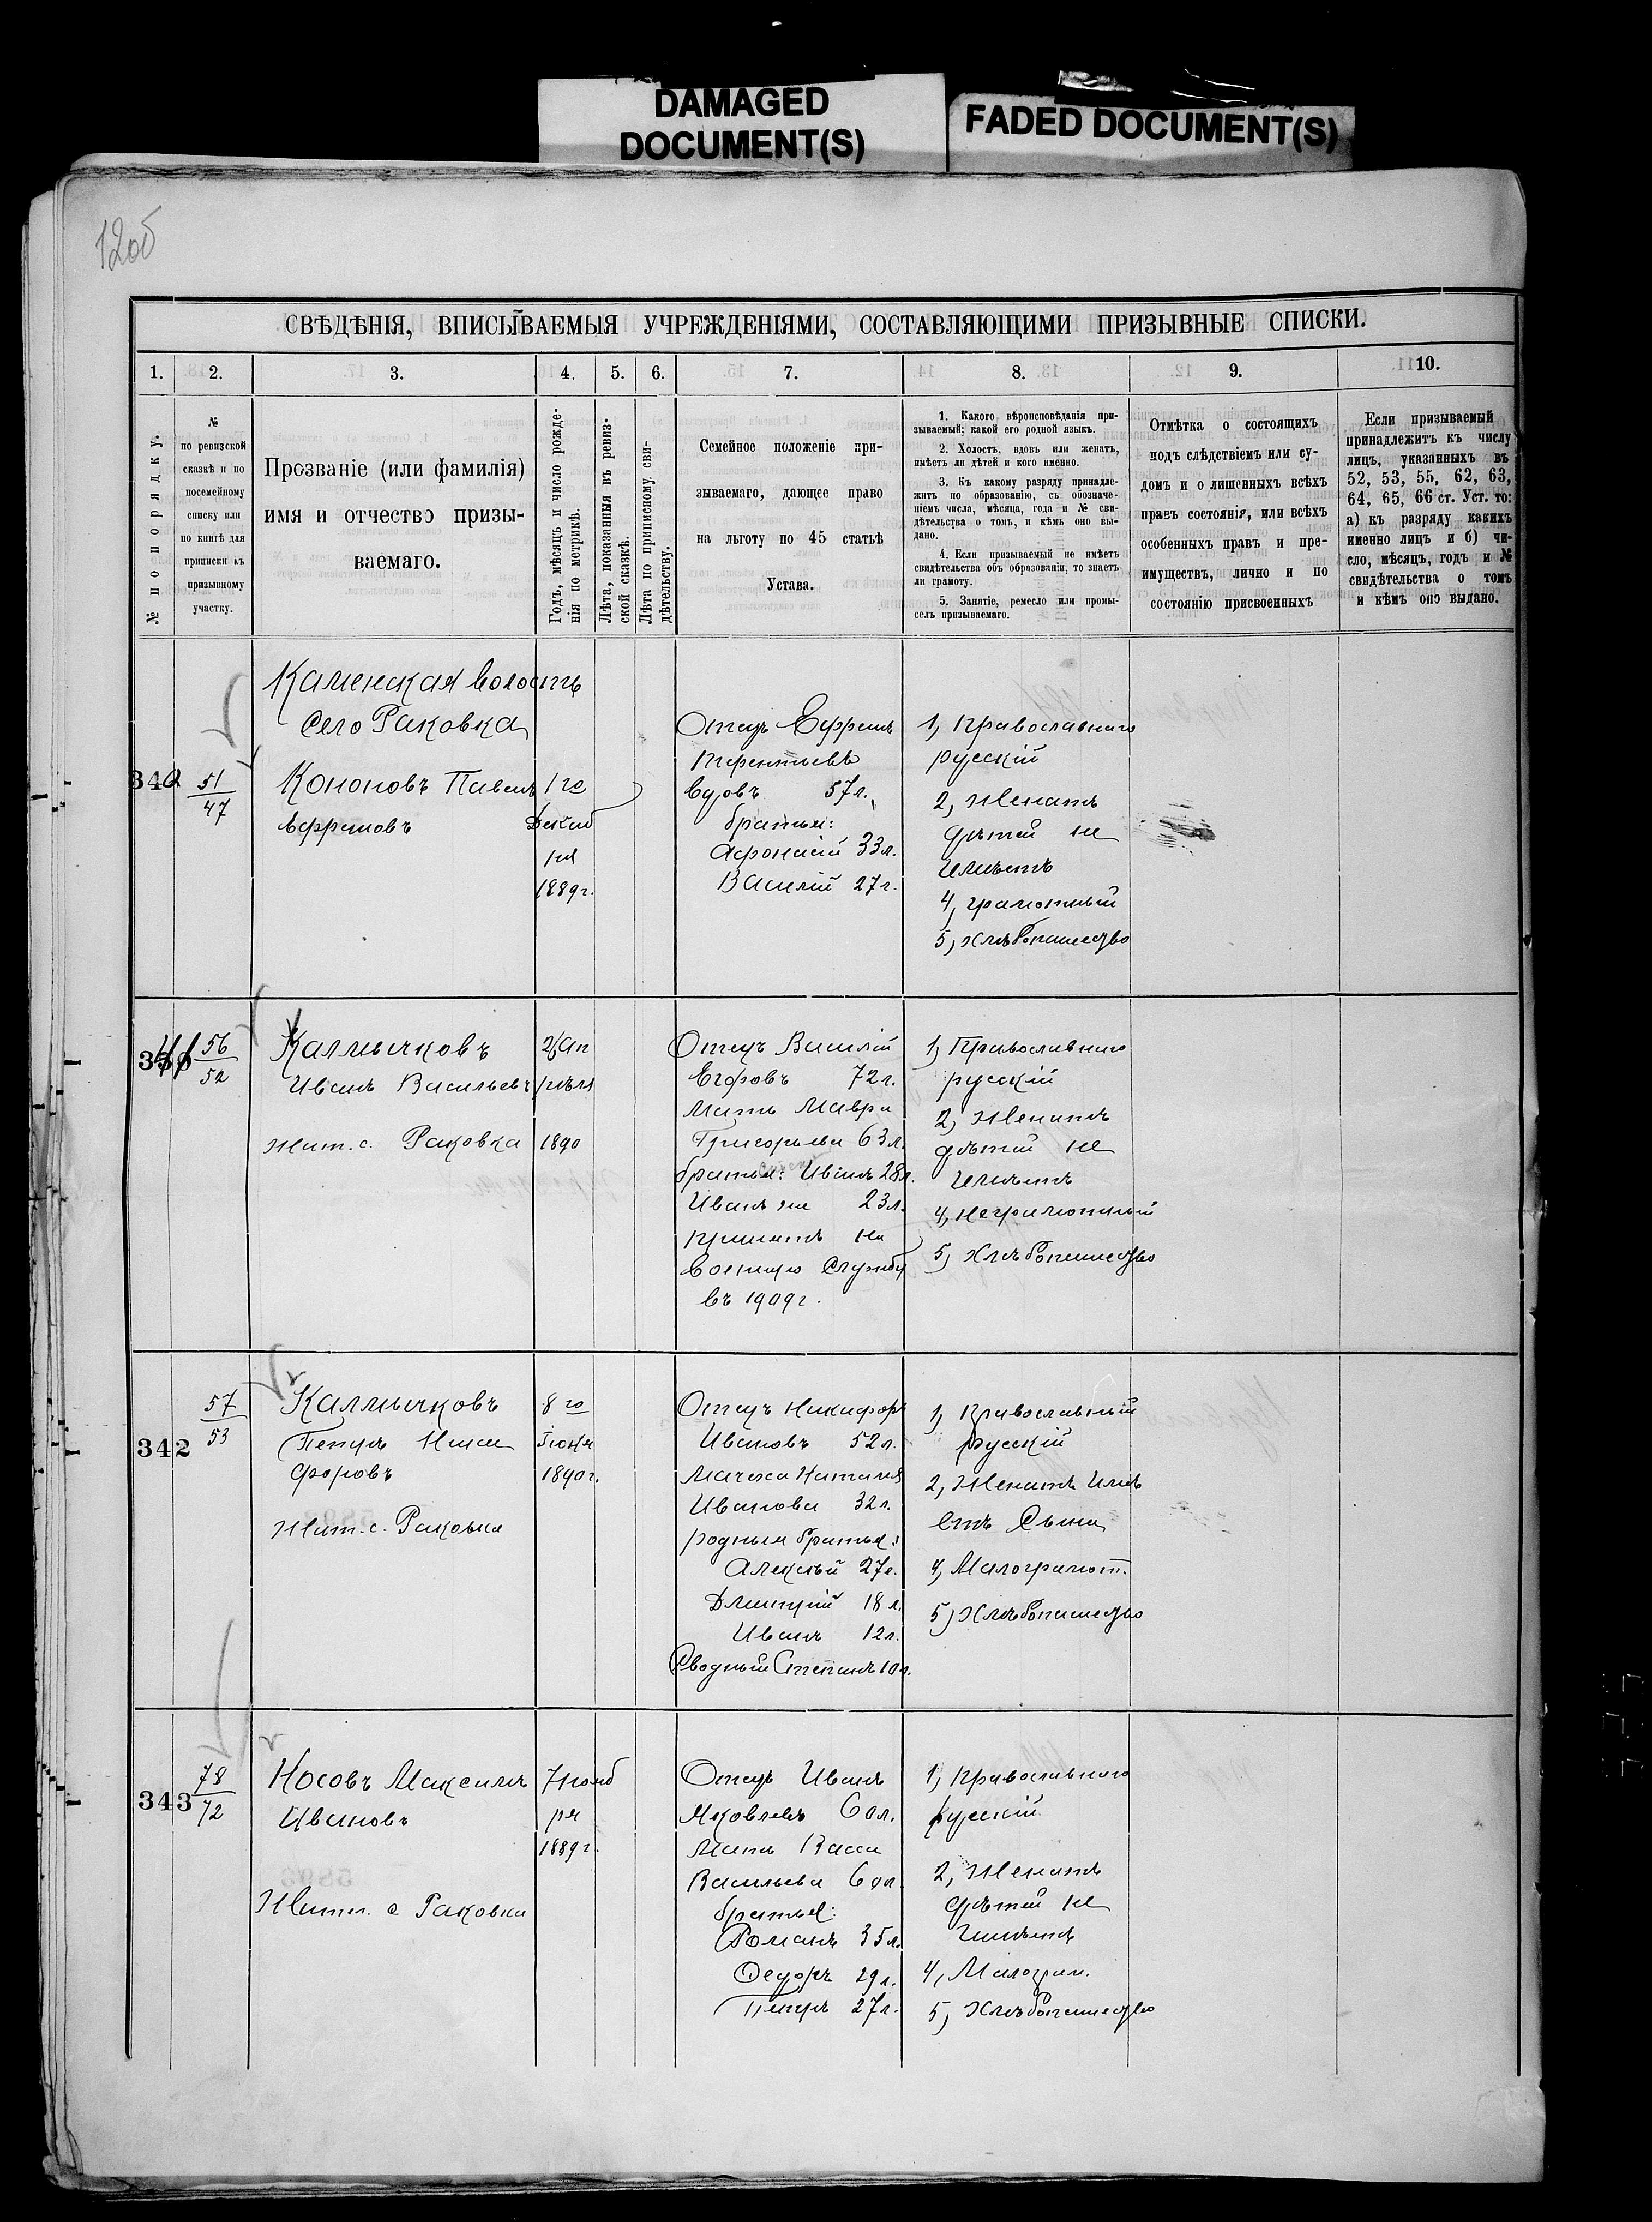 DAMAGED
DOCUMENT(S)
FADED DOCUMENT(S)
12об
СВѢДѢНІЯ, ВПИСЫВАЕМЫЯ УЧРЕЖДЕНІЯМИ, СОСТАВЛЯЮЩИМИ ПРИЗЫВНЫЕ СПИСКИ.
1. 2. 3. 4. 5. 6. 7. 8. 9. 10.
№ по порядку.
№
по ревизской
сказкѣ и по
посемейному
списку или
по книгѣ для
приписки къ
призывному
участку.
Прозваніе (или фамилія)
имя и отчество призы-
ваемаго.
Годъ, мѣсяцъ и число рожде-
нія по метрикѣ.
Лѣта, показанныя въ ревиз-
ской сказкѣ.
Лѣта по приписному сви-
дѣтельству.
Семейное положеніе при-
зываемаго, дающее право
на льготу по 45 статьѣ
Устава.
1. Какого вѣроисповѣданія при-
зываемый; какой его родной языкъ.
2. Холостъ, вдовъ или женатъ,
имѣетъ ли дѣтей и кого именно.
3. Къ какому разряду принадле-
житъ по образованію, съ обозначе-
ніемъ числа, мѣсяца, года и № сви-
дѣтельства о томъ, и кѣмъ оно вы-
дано.
4. Если призываемый не имѣетъ
свидѣтельства объ образованіи, то знаетъ
ли грамоту.
5. Занятіе, ремесло или промы-
селъ призываемаго.
Отмѣтка о состоящихъ
подъ слѣдствіемъ или су-
домъ и о лишенныхъ всѣхъ
правъ состоянія, или всѣхъ
особенныхъ правъ и пре-
имуществъ, лично и по
состоянію присвоенныхъ
Если призываемый
принадлежитъ къ числу
лицъ, указанныхъ въ
52, 53, 55, 62, 63,
64, 65, 66 ст. Уст. то:
а) къ разряду какихъ
именно лицъ и б) чи-
сло, мѣсяцъ, годъ и №
свидѣтельства о томъ
и кѣмъ оно выдано.
Каменская волость
Село Раковка
340
51
47
Кононовъ Павелъ
Ефремовъ
1го
Декаб
ря
1889г.
Отецъ Ефремъ
Терентьевъ
вдовъ 57л.
братья:
Афонасій 33л.
Василій 27г.
1, Православнаго
русскій
2, женатъ
дѣтей не
имѣетъ
4, грамотный
5, Хлѣбопашество
341
56
52
Калмычковъ
Иванъ Васильевъ
Жит. с. Раковка
Ап
рѣля
1890
Отецъ Василій
Егоровъ 72л.
Мать Мавра
Григорьева 63л.
братья: Иванъ 28л.
Иванъ же 23л.
принятъ на
военную службу
въ 1909г.
1, Православнаго
русскій
2, Женатъ
дѣтей не
имѣетъ
4, неграмотный
5, Хлѣбопашество
342
57
53
Калмычковъ
Петръ Ники
форовъ
Жит. с. Раковка
8 го
Іюня
1890г.
Отецъ Никифоръ
Ивановъ 52л.
Мачеха Наталія
Иванова 32л.
родные братья:
Алексѣй 27л.
Дмитрій 18л.
Иванъ 12л.
Сводный Степанъ 10л.
1, Православный
русскій
2, Женатъ имѣ
етъ Сына
4, Малограмот.
5, Хлѣбопашество
343
78
72
Носовъ Максимъ
Ивановъ
Жит. с Раковки
7 нояб
ря
1889г.
Отецъ Иванъ
Яковлевъ 60л.
Мать Васса
Васильева 60л
братья:
Романъ 35л.
Федоръ 29л.
Петръ 27л.
1, Православнаго
русскій
2, Женатъ
дѣтей не
имѣетъ
4, Малограм.
5, Хлѣбопашество